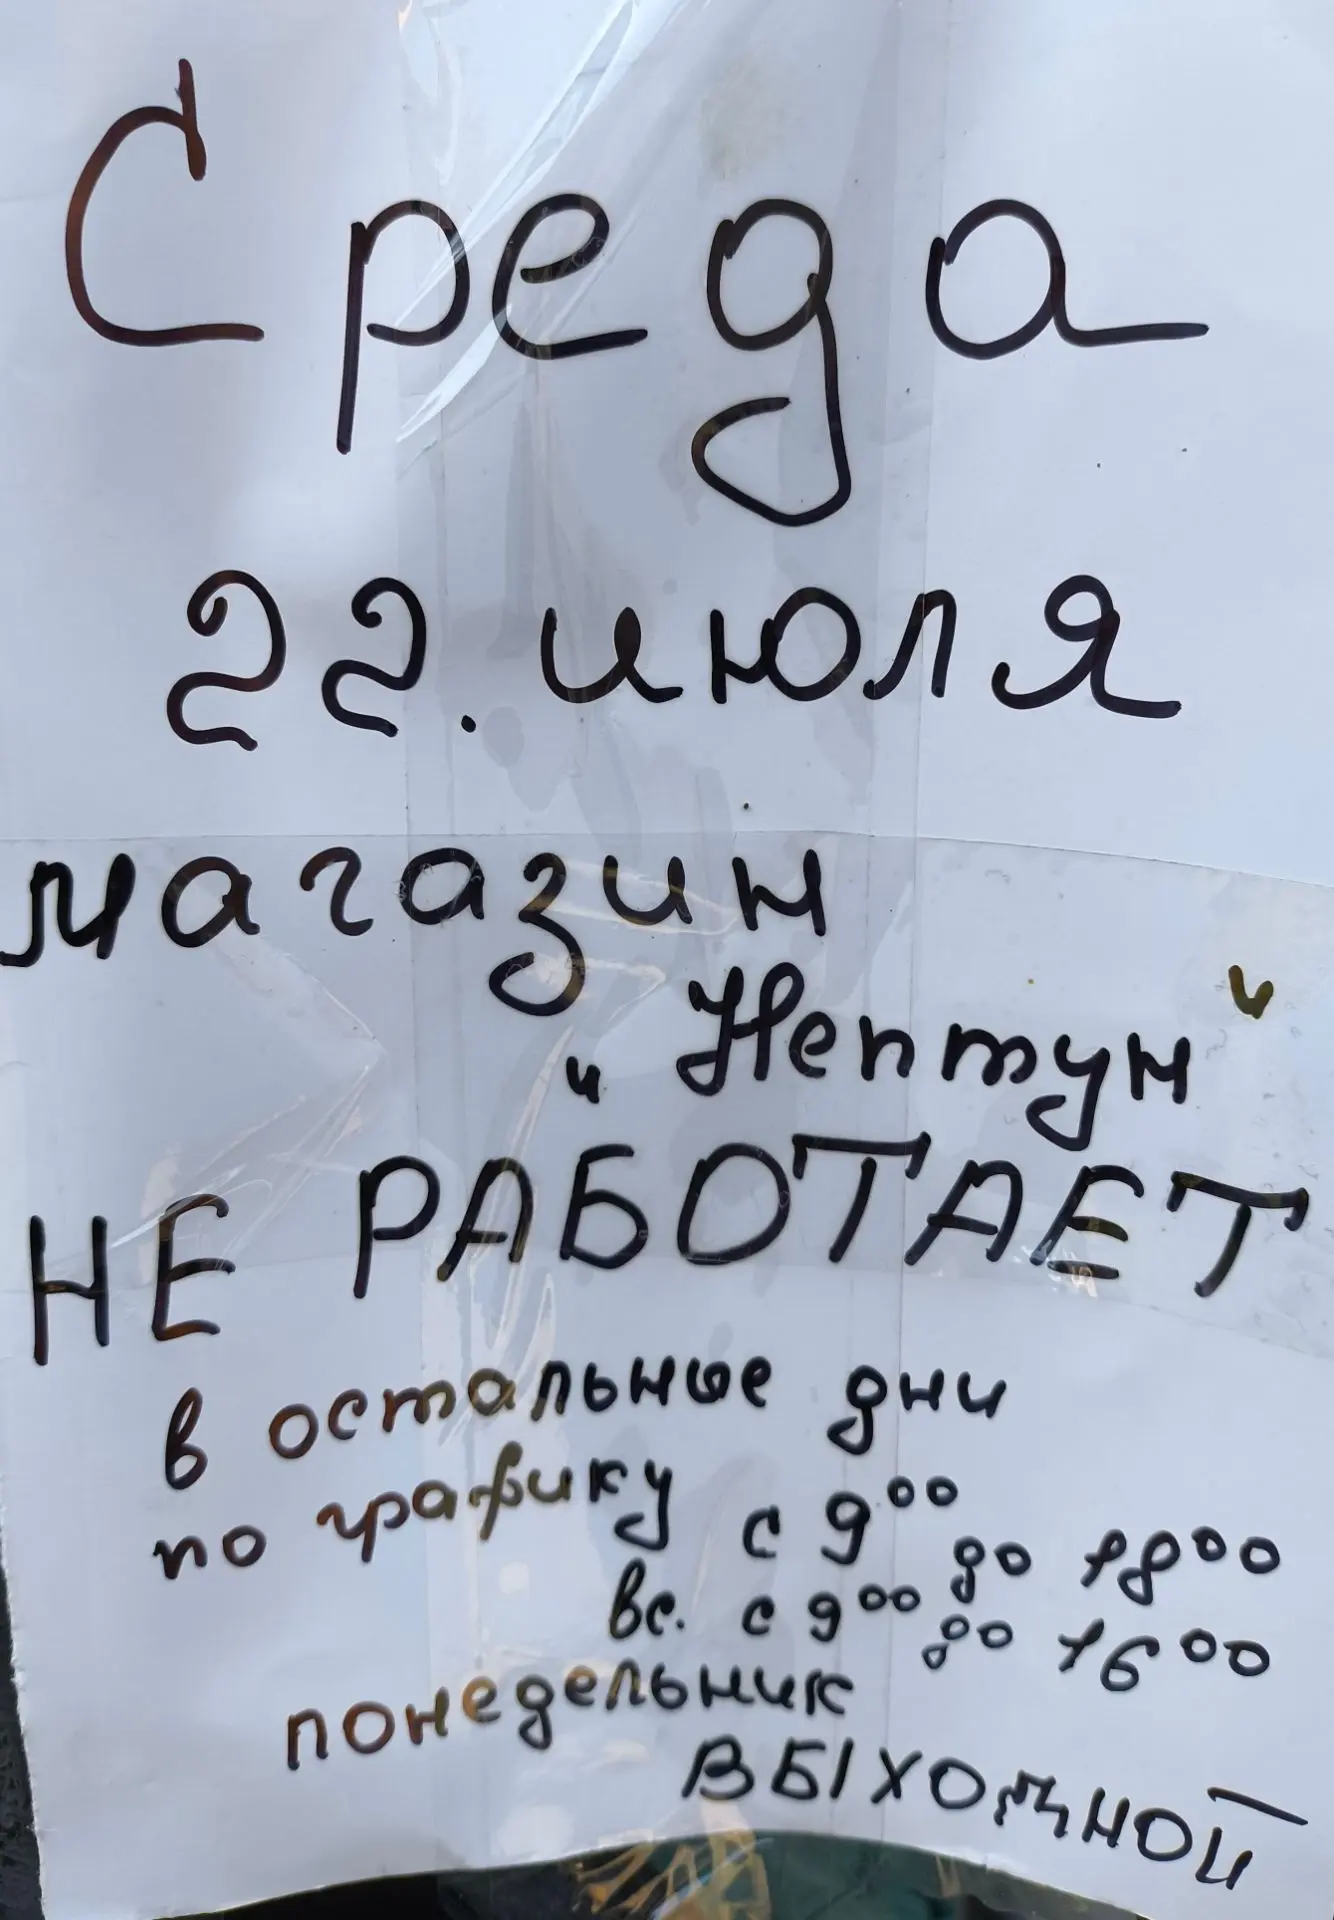 Среда
22. июля
магазин
„Нептун"
НЕ РАБОТАЕТ
в остальные дни
по графику с 9⁰⁰ до 18⁰⁰
вс. с 9⁰⁰ до 16⁰⁰
понедельник
ВЫХОДНОЙ